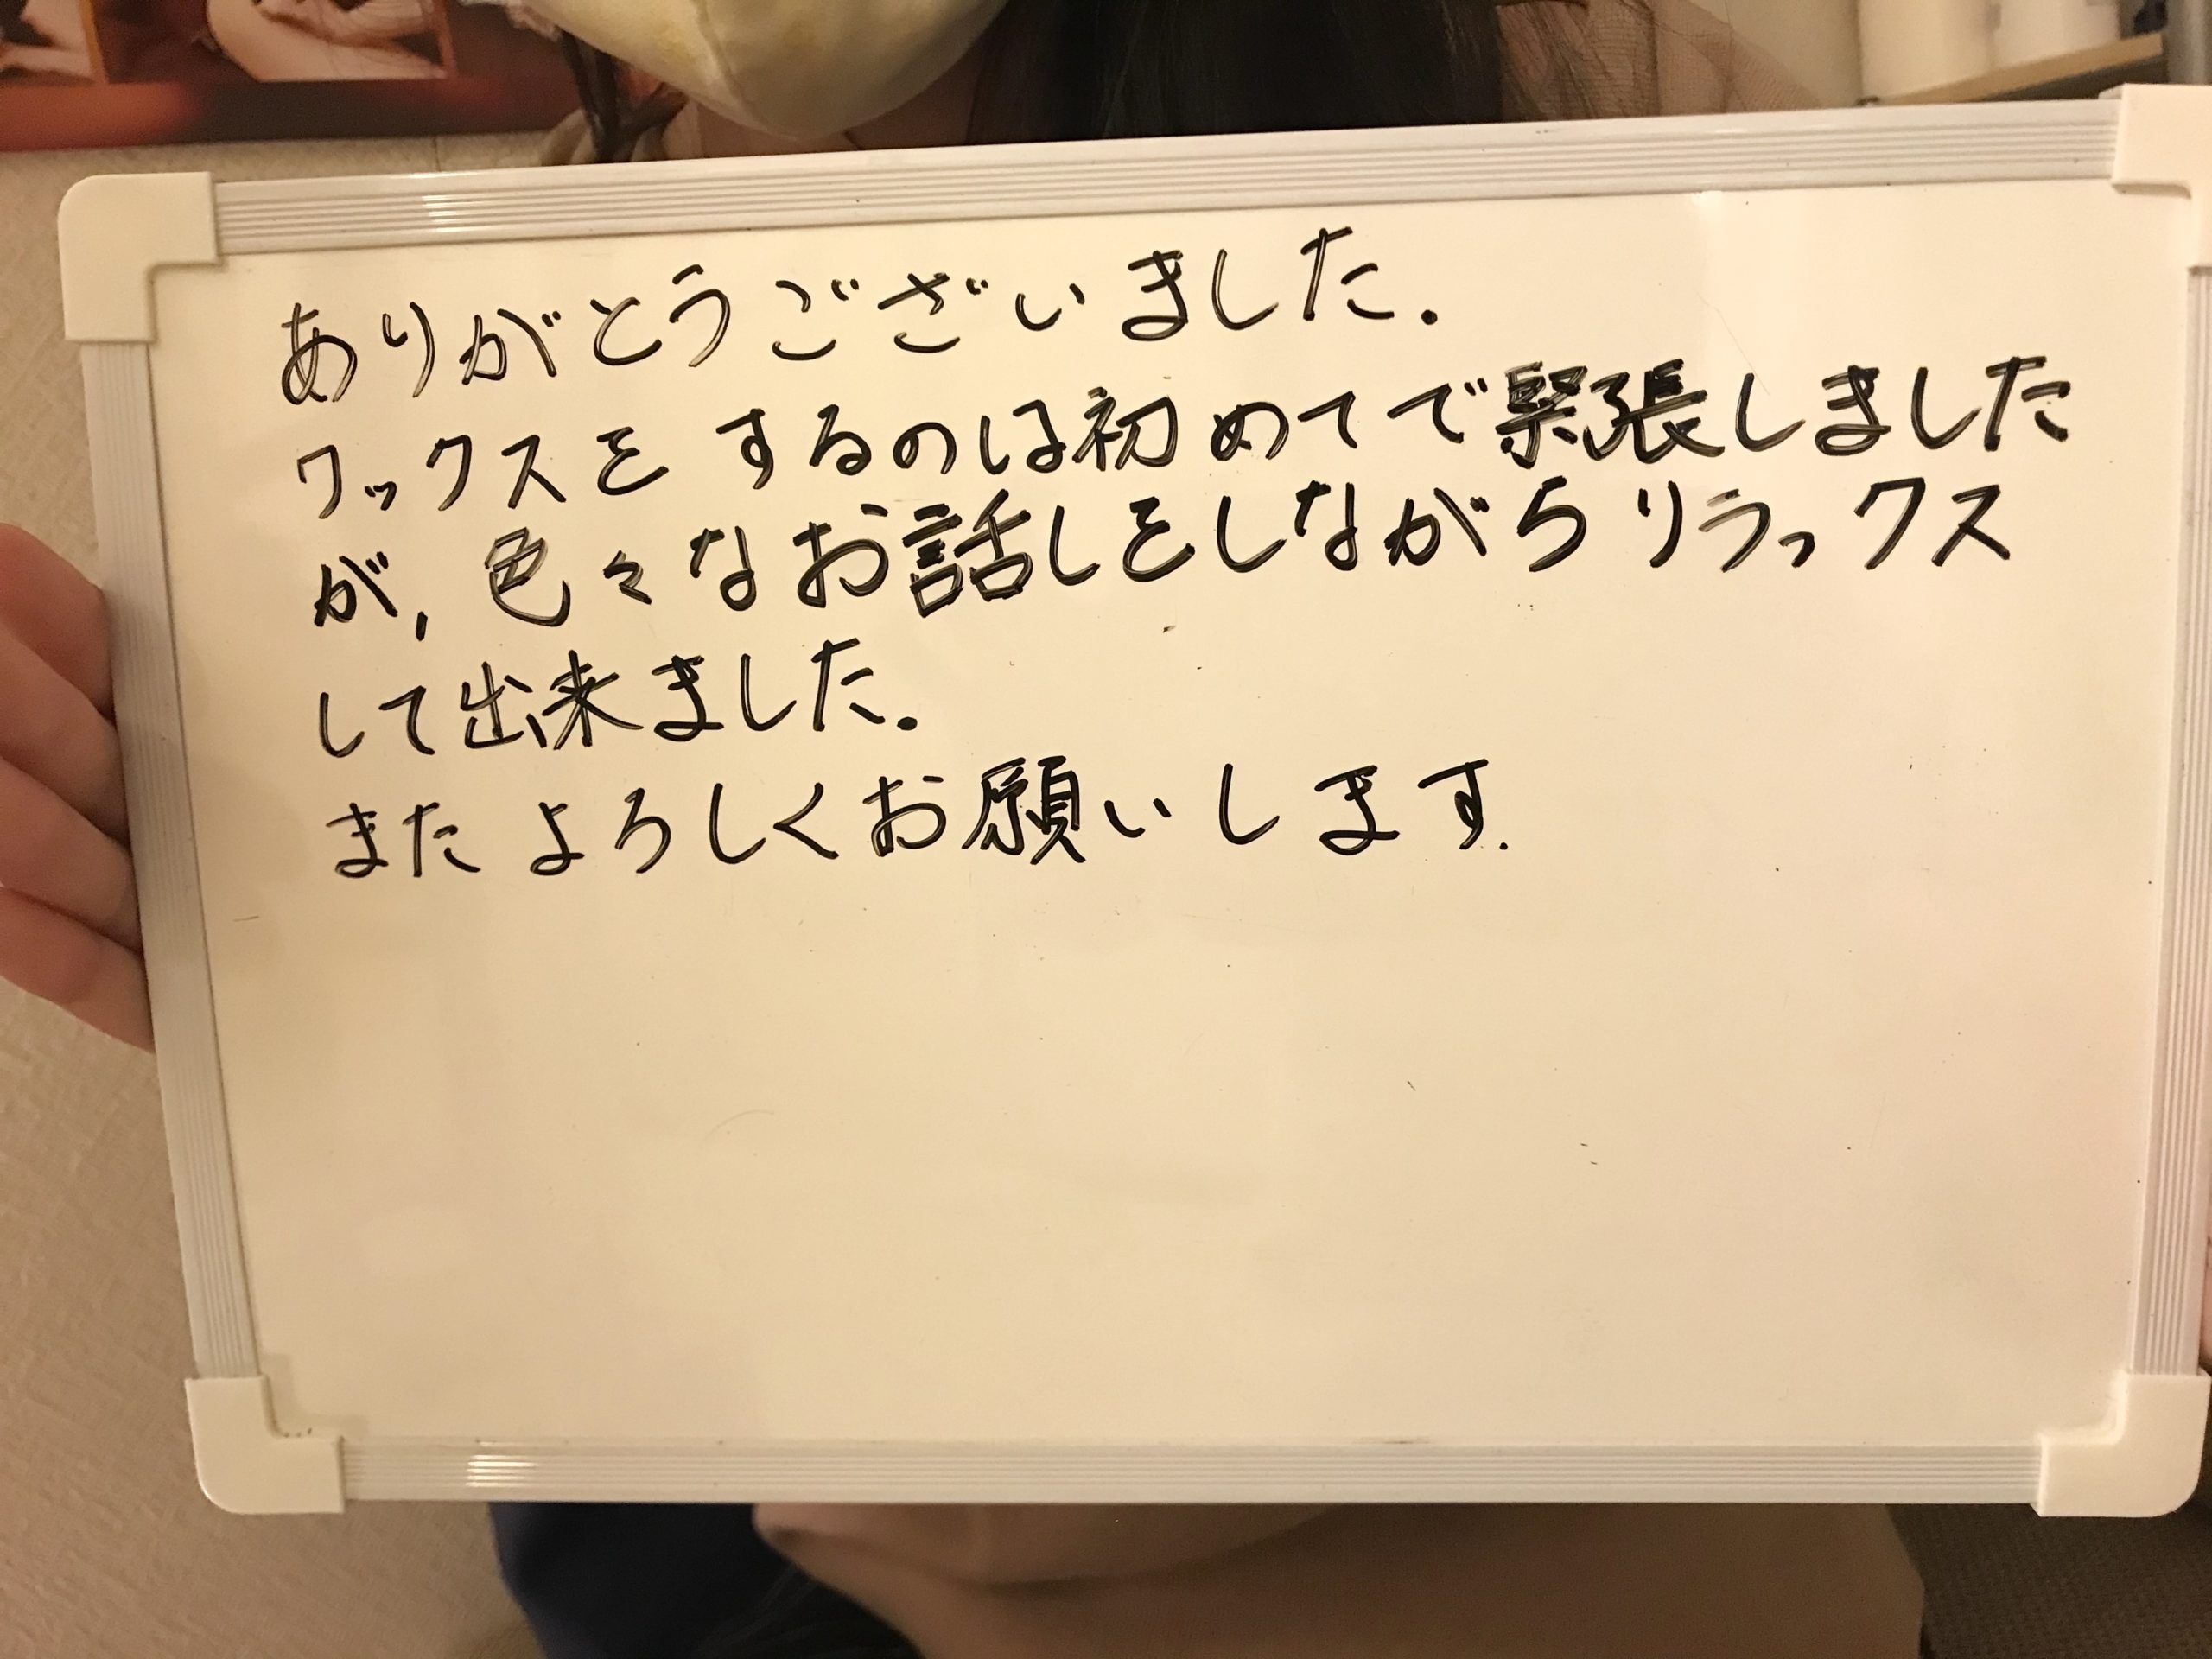 ありがとうございました.
ワックスを するのは初めてで緊張しました
が, 色々なお話しをしながらリラックス
して出来ました.
また よろしくお願いします.